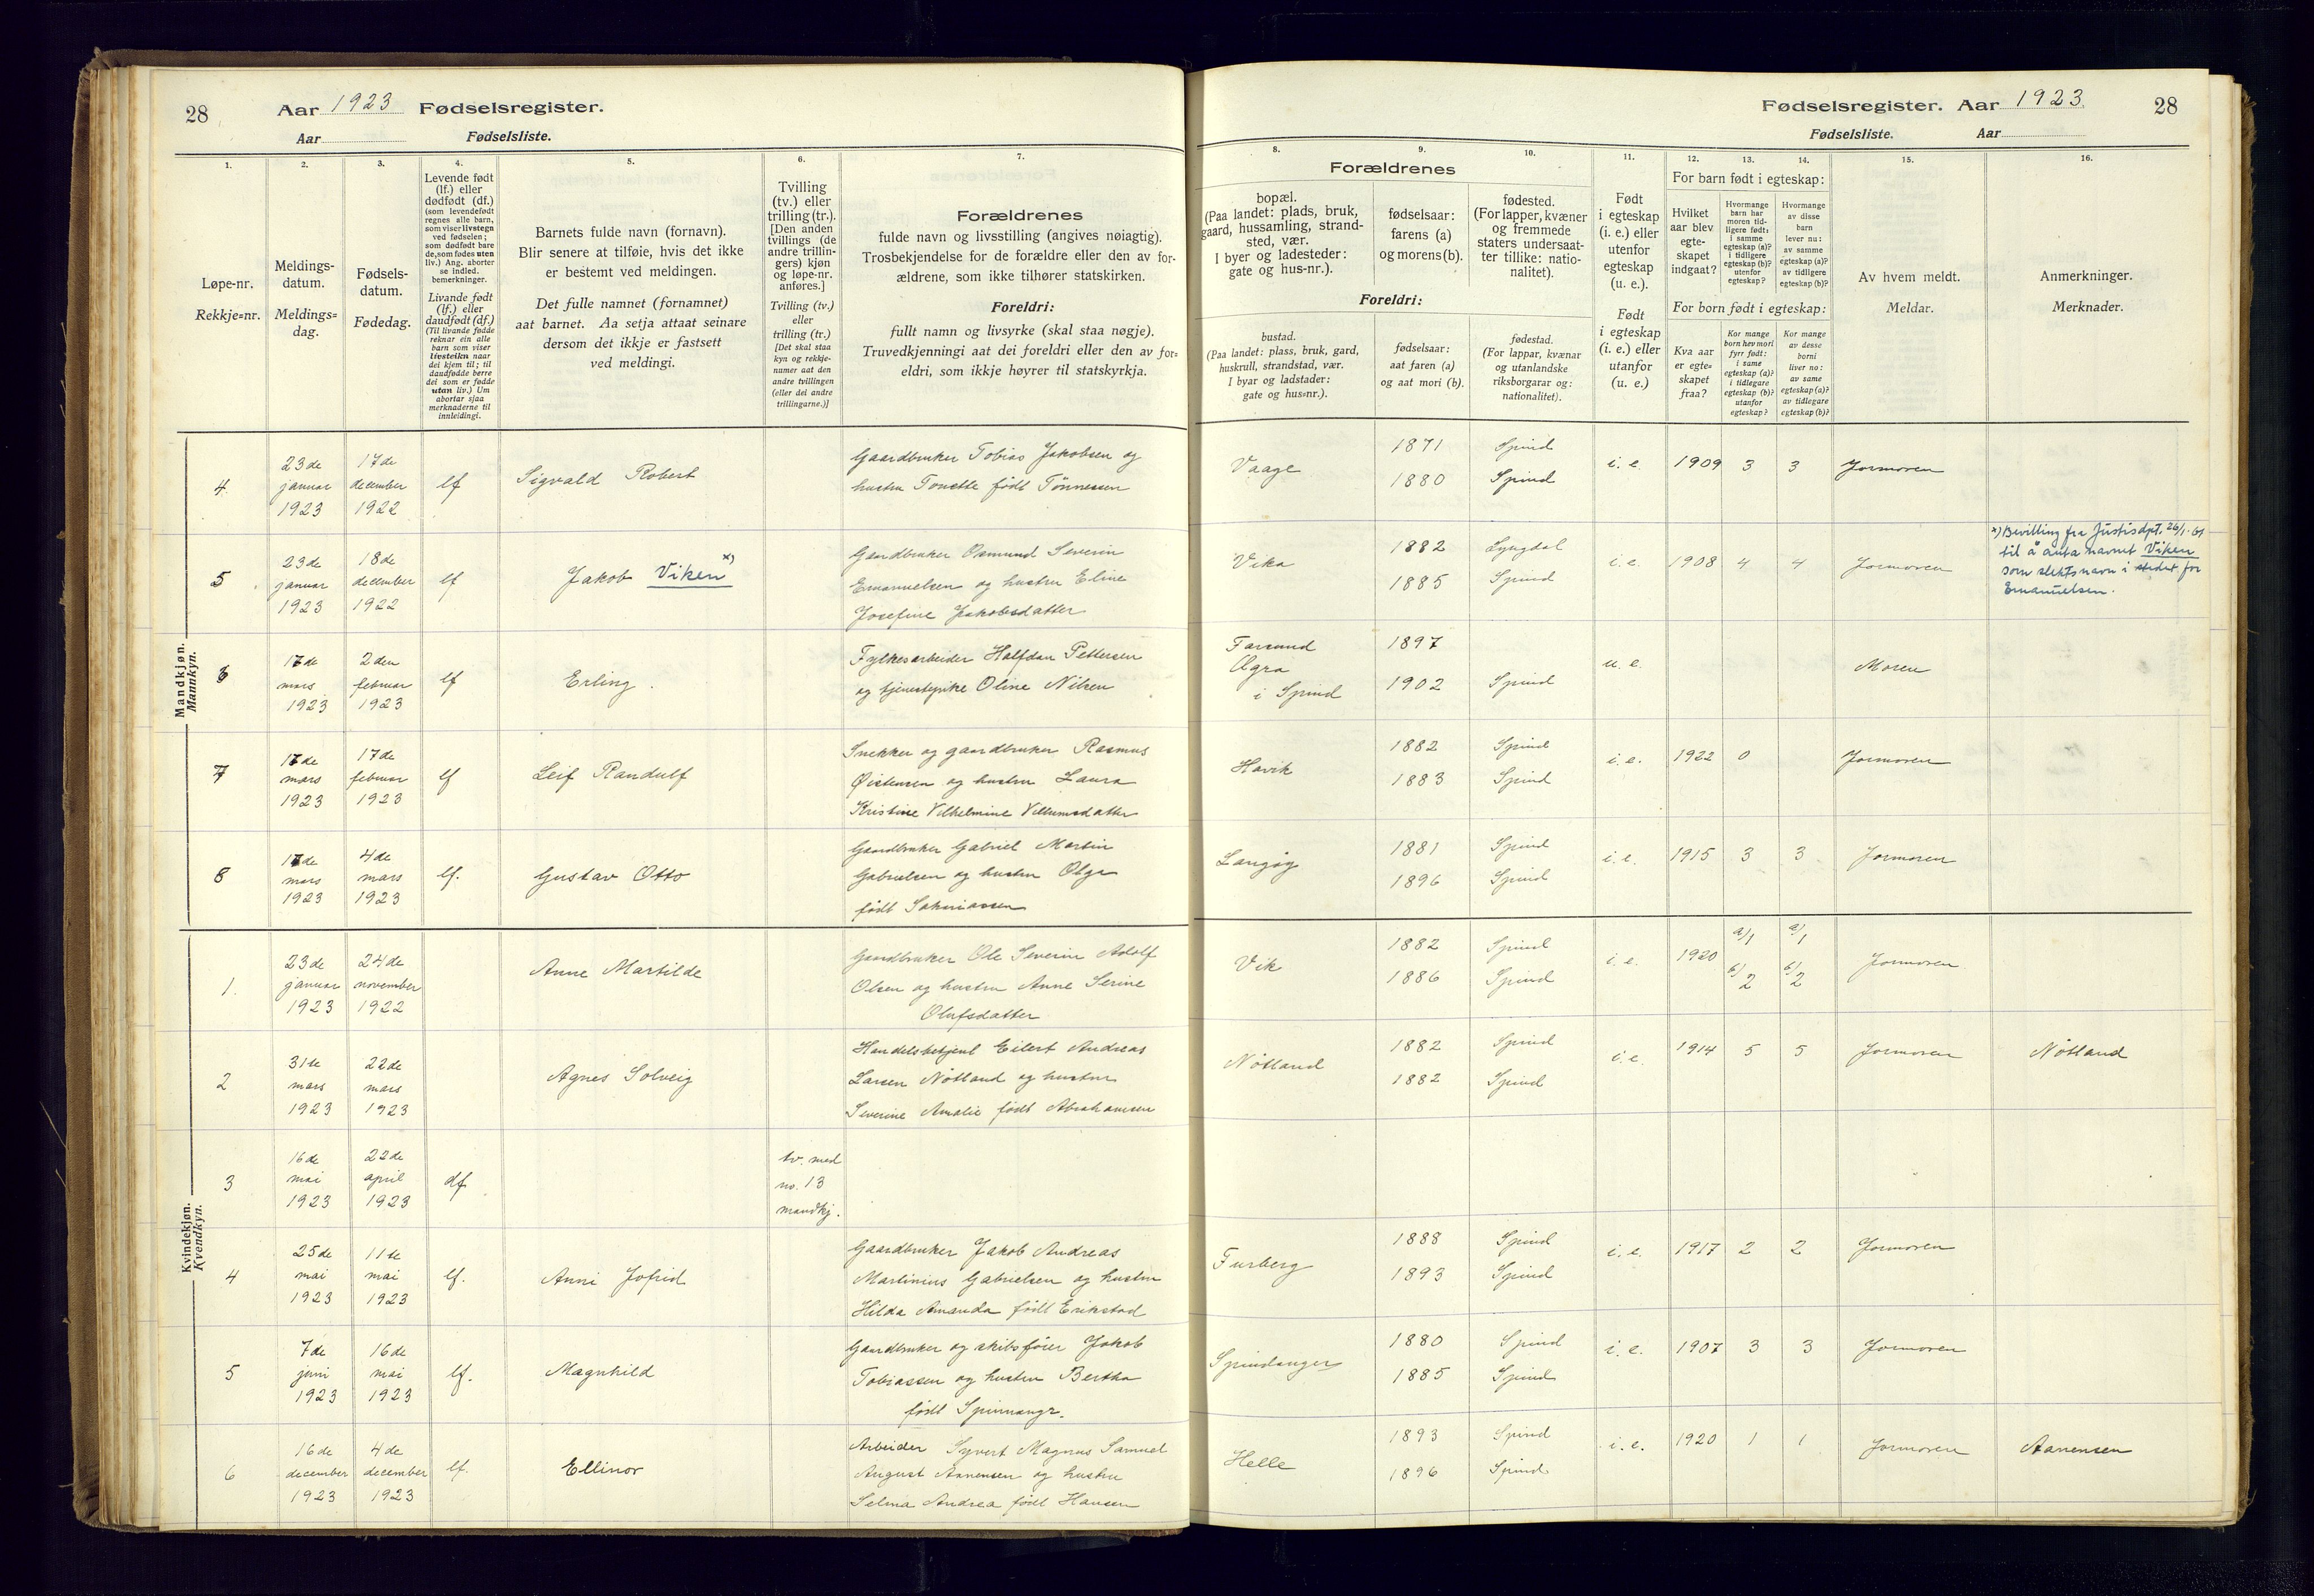 28
Aar 1923 Fødselsregister.
Aar Fødselsliste.
1.
2.
3.
4.
5.
6.
7.
Løpe-nr.
Rekkje=nr.
Meldings-
datum.
Meldings=
dag.
Fødsels-
datum.
Fødedag.
Levende født
(lf.) eller
dødfødt (df.)
(som levendefødt
regnes alle barn,
som viser livstegn
ved fødselen;
som dødfødt bare
de, som fødes uten
liv.) Ang. aborter
se indled.
bemerkninger.
Livande født
(lf.) eller
daudfødt (df.)
(Til livande fødde
reknar ein alle
barn som viser
livsteikn naar
dei kjem til; til
daudfødde berre
dei som er fødde
utan liv.) Um
abortar sjaa
merknaderne til
innleidingi.
Barnets fulde navn (fornavn).
Blir senere at tilføie, hvis det ikke
er bestemt ved meldingen.
Det fulle namnet (fornamnet)
aat barnet. Aa setja attaat seinare
dersom det ikkje er fastsett
ved meldingi.
Tvilling
(tv.) eller
trilling (tr.).
[Den anden
tvillings (de
andre trillin-
gers) kjøn
og løpe-nr.
anføres.]
Tvilling (tv.)
eller
trilling (tr.)
[Det skal staa
kyn og rekkje-
numer aat den
andre tvillingen
(eller dei andre
trillingarne.)]
Forældrenes
fulde navn og livsstilling (angives nøiagtig).
Trosbekjendelse for de forældre eller den av for-
ældrene, som ikke tilhører statskirken.
Foreldri:
fullt namn og livsyrke (skal staa nøgje).
Truvedkjenningi aat dei foreldri eller den av for=
eldri, som ikkje høyrer til statskyrkja.
Mandkjøn.
Mannkyn.
4.
23de
januar
1923
17de
december
1922
lf
Sigvald Robert
Gaardbruker Tobias Jakobsen og
hustru Tonette født Tønnessen
5
23de
januar
1923
18de
december
1922
lf
Jakob Viken x)
Gaardbruker Osmund Severin
Emanuelsen og hustru Eline
Josefine Jakobsdatter
6
17de
mars
1923
2den
februar
1923
lf
Erling.
Fylkesarbeider Halfdan Pettersen
og tjenestepike Oline Nilsen
7
17de
mars
1923
17de
februar
1923
lf
Leif Randulf
Snekker og gaardbruker Rasmus
Øistensen og hustru Laura
Kristine Vilhelmine Villumsdatter
8
17de
mars
1923
4de
mars
1923
lf.
Gustav Otto
Gaardbruker Gabriel Martin
Gabrielsen og hustru Olga
født Sakariassen
Kvindekjøn.
Kvendkyn.
1.
23de
januar
1923
24de
november
1922
Anne Martilde
Gaardbruker Ole Severin Adolf
Olsen og hustru Anne Serine
Olufsdatter
2
31te
mars
1923
22de
mars
1923
Agnes Solveig
Handelsbetjent Eilert Andreas
Larsen Nøtland og hustru
Severine Amalie født Abrahamsen
3
16de
mai
1923
22de
april
1923
df
tv. med
no. 13
mandkj.
4
25de
mai
1923
11te
mai
1923
lf.
Anni Jofrid
Gaardbruker Jakob Andreas
Martinius Gabrielsen og hustru
Hilda Amanda født Erikstad
5
7de
juni
1923
16de
mai
1923
lf.
Magnhild
Gaardbruker og skibsfører Jakob
Tobiassen og hustru Bertha
født Spinnangr.
6
16de
december
1923
4de
december
1923
lf.
Ellinor
Arbeider Syvert Magnus Samuel
August Aanensen og hustru
Selma Andrea født Hansen
Fødselsregister. Aar 1923
28
Fødselsliste. Aar
8.
9.
10.
11.
12.
13.
14.
15.
16.
Forældrenes
bopæl.
(Paa landet: plads, bruk,
gaard, hussamling, strand-
sted, vær.
I byer og ladesteder:
gate og hus-nr.).
fødselsaar:
farens (a)
og morens (b).
fødested.
(For lapper, kvæner
og fremmede
staters undersaat-
ter tillike: natio-
nalitet).
Foreldri:
bustad.
(Paa landet: plass, bruk, gard,
huskrull, strandstad, vær.
I byar og ladstader:
gate og hus=nr.).
fødselsaar:
aat faren (a)
og aat mori (b).
fødestad.
(For lappar, kvænar
og utanlandske
riksborgarar og:
nationalitet).
Født
i egteskap
(i. e.) eller
utenfor
egteskap
(u. e.).
Født
i egteskap
(i. e.) eller
utanfor
(u. e.)
For barn født i egteskap:
Hvilket
aar blev
egte-
skapet
indgaat?
Hvormange
barn har
moren tid-
ligere født:
i samme
egteskap (a)?
i tidligere
egteskap (b)?
utenfor
egteskap?
Hvormange
av disse
barn
lever nu:
av samme
egteskap (a)?
av tidligere
egteskap (b)?
For born født i egteskap:
Kva aar
er egte=
skapet
fraa?
Kor mange
born hev mori
fyrr født:
i same
egteskap (a)?
i tidlegare
egteskap (b)?
utanfor
egteskap?
Kor mange
av desse
borni
liver no:
av same
egteskap (a)?
av tidlegare
egteskap (b)?
Av hvem meldt.
Meldar.
Anmerkninger.
Merknader.
Vaage
1871
1880
Spind
Spind
i. e.
1909
3
3
Jormoren
Vika
1882
1885
Lyngdal
Spind
i. e.
1908
4
4
Jormoren
x) Bevilling fra Justisdpt. 26/1-61
til å anta navnet Viken
som slektsnavn i stedet for
Emanuelsen.
Farsund
Øgra
i Spind
1897
1902
Spind
u. e.
Moren
Havik
1882
1883
Spind
Spind
i. e.
1922
0
Jormoren
Langøy
1881
1896
Spind
Spind
i. e.
1915
3
3
Jormoren
Vik
1882
1886
Spind
Spind
i. e.
1920
a/1
b/2
a/1
b/2
Jormoren
Nøtland
1882
1882
Spind
Spind
i. e.
1914
5
5
Jormoren
Nøtland
Furberg
1888
1893
Spind
Spind
i. e.
1917
2
2
Jormoren
Spindanger
1880
1885
Spind
Spind
i. e.
1907
3
3
Jormoren
Helle
1893
1896
Spind
Spind
i. e.
1920
1
1
Jormoren
Aanensen